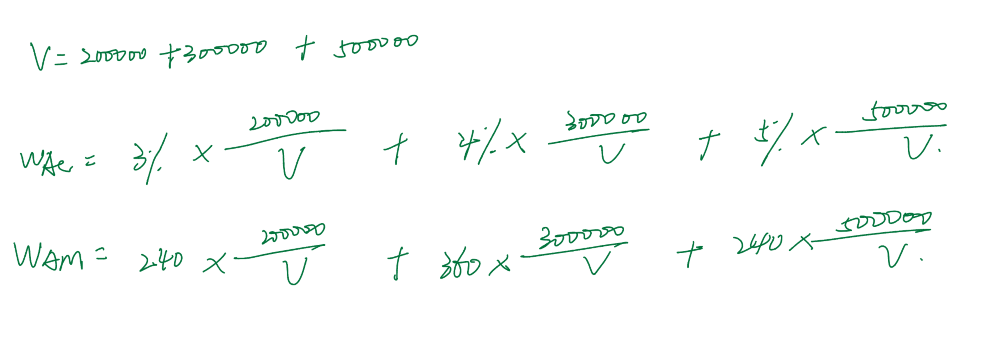 V = 200000 + 300000 + 500000
WAC = 3% × 200000/V + 4% × 300000/V + 5% × 500000/V.
WAM = 240 × 200000/V + 360 × 300000/V + 240 × 500000/V.